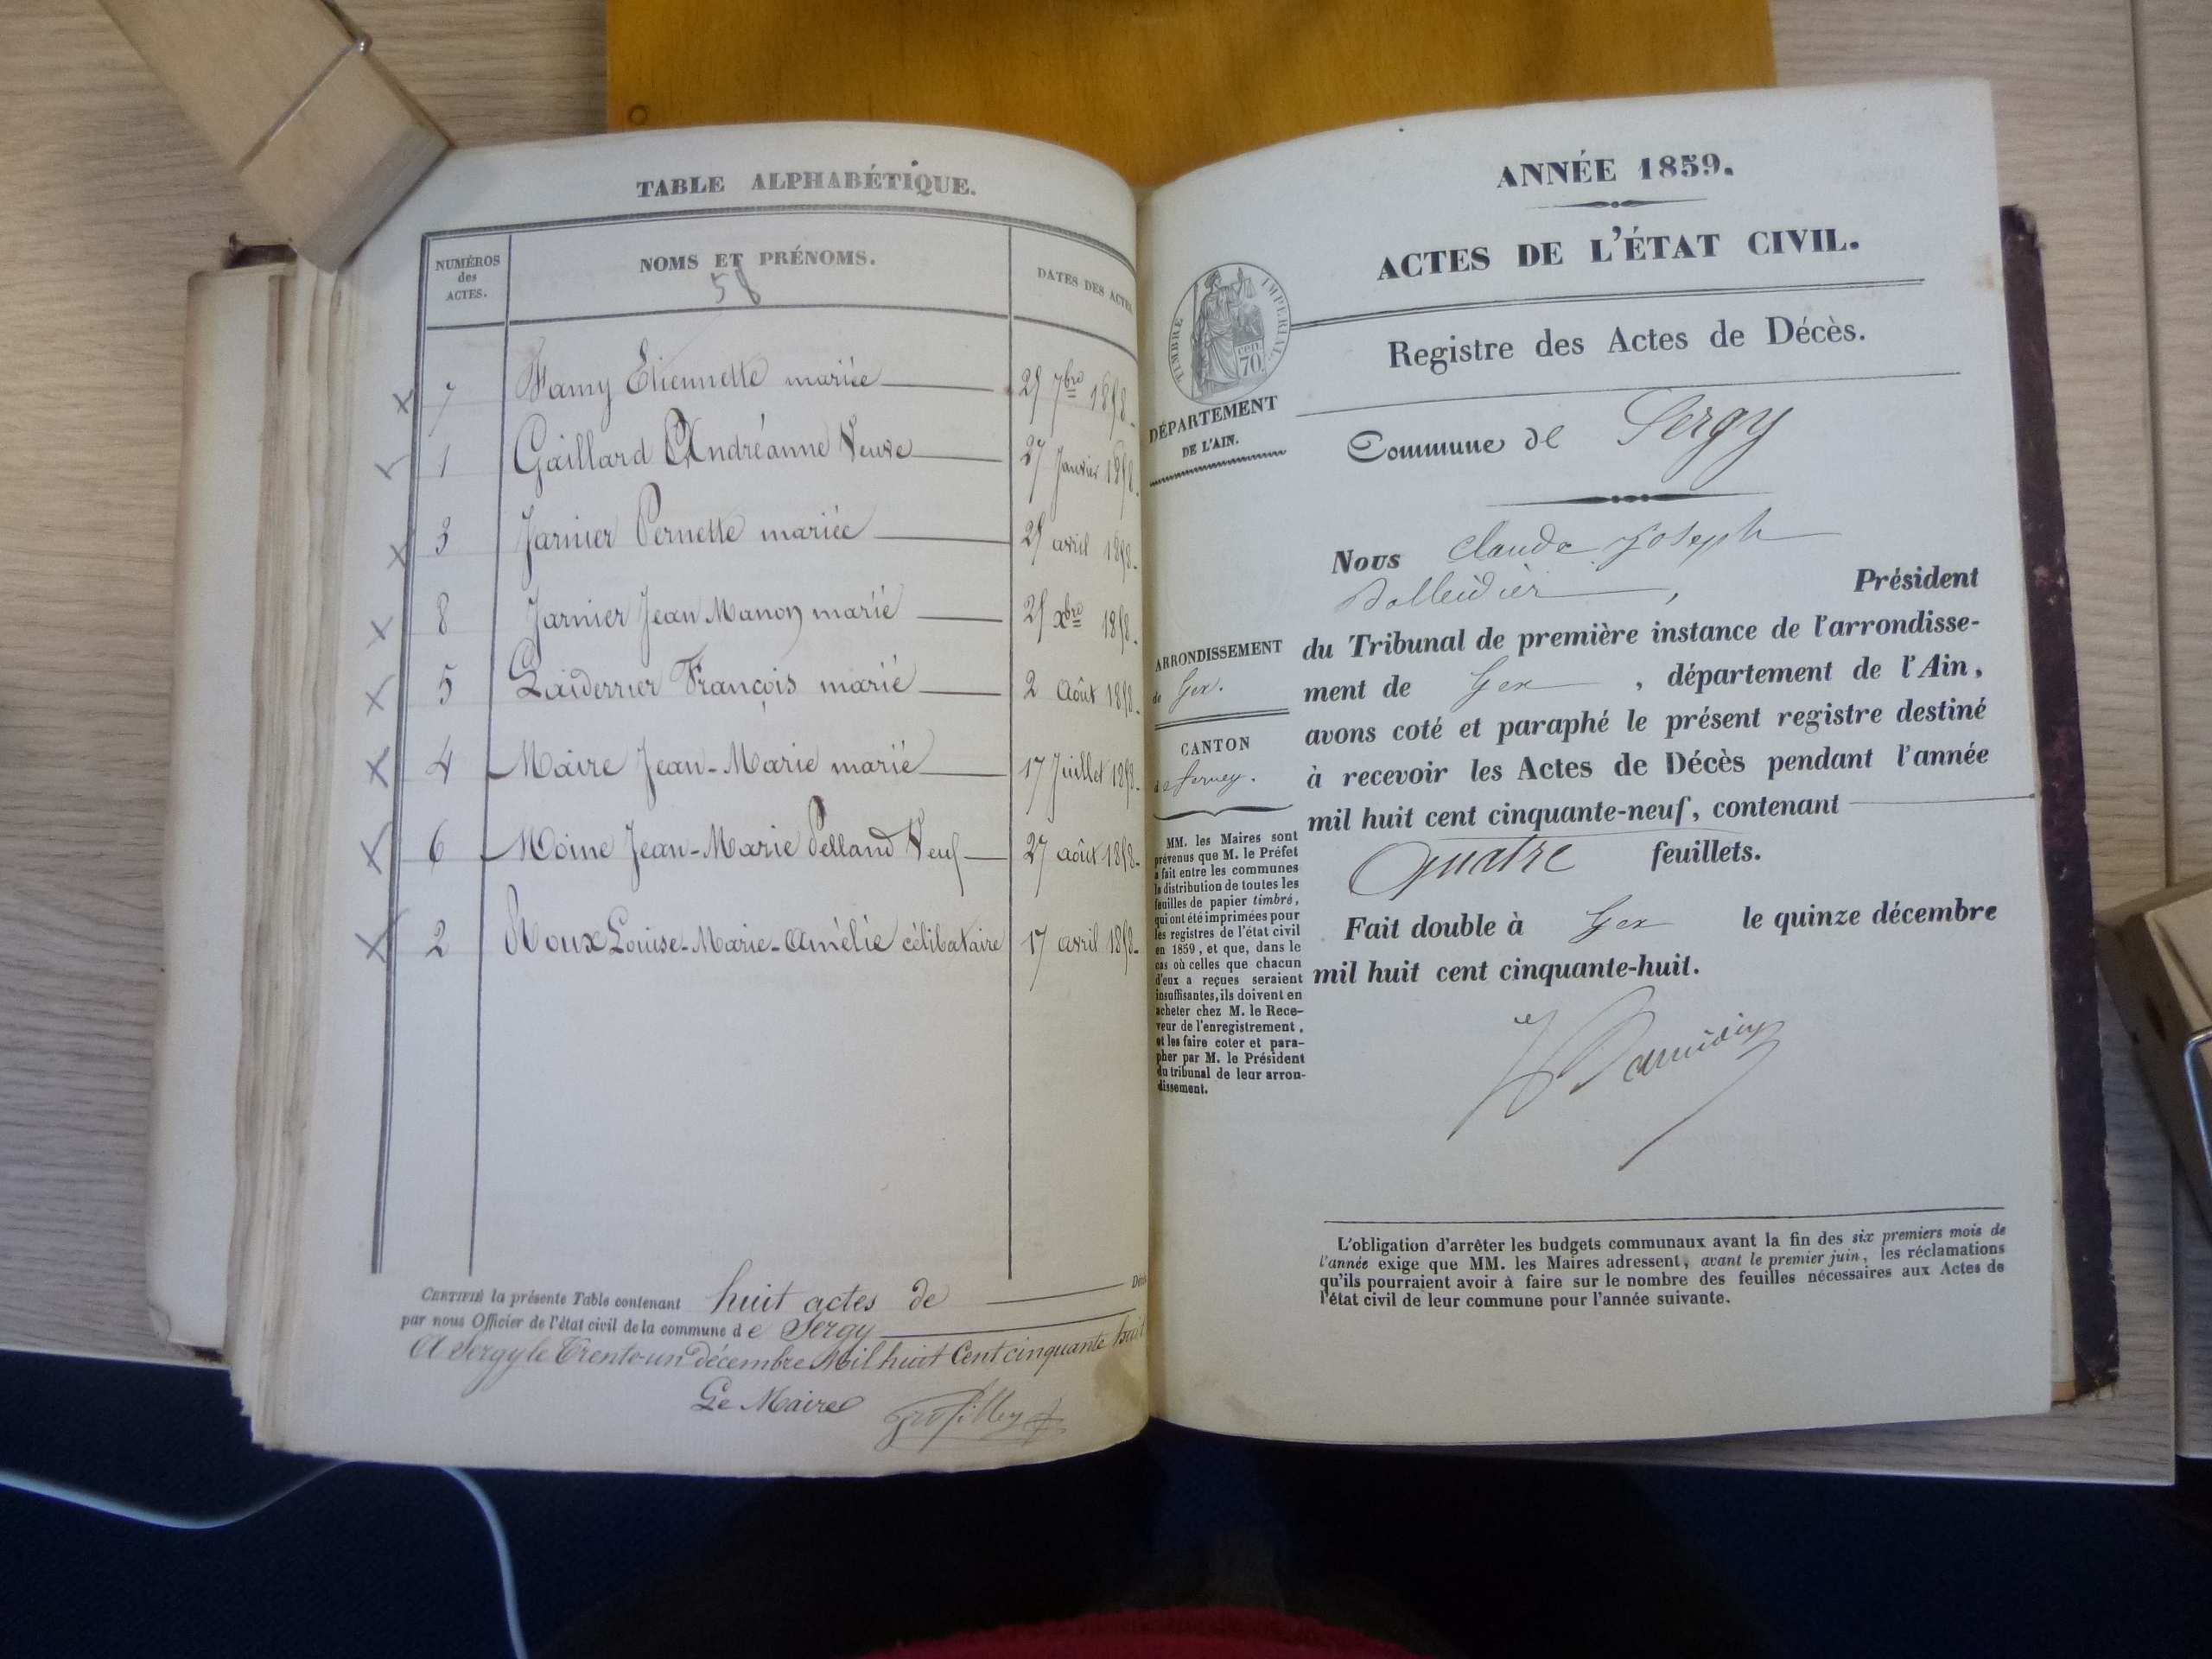 TABLE ALPHABÉTIQUE.
NUMÉROS des ACTES.
NOMS ET PRÉNOMS.
DATES DES ACTES
58
7 Famy Etiennette mariée 25 7bre 1858.
1 Gaillard Andréanne Veuve 27 Janvier 1858.
3 Jarnier Pernette mariée 25 avril 1858.
8 Jarnier Jean Manon marié 25 xbre 1858.
5 Laiderrier François marié 2 Août 1858.
4 Maire Jean-Marie marié 17 Juillet 1858.
6 Moine Jean-Marie Pelland Veuf 27 août 1858.
2 Roux Louise-Marie-Amélie célibataire 17 avril 1858.
CERTIFIÉ la présente Table contenant huit actes de Décè
par nous Officier de l'état civil de la commune de Sergy
A Sergy le Trente-un décembre Mil huit Cent cinquante huit
Le Maire
ANNÉE 1859.
ACTES DE L'ÉTAT CIVIL.
TIMBRE IMPÉRIAL
70 cen.
Registre des Actes de Décès.
DÉPARTEMENT
DE L'AIN.
Commune de Sergy
Nous Claude Joseph
, Président
du Tribunal de première instance de l'arrondisse-
ment de Gex , département de l'Ain,
avons coté et paraphé le présent registre destiné
à recevoir les Actes de Décès pendant l'année
mil huit cent cinquante-neuf, contenant
Quatre feuillets.
Fait double à Gex le quinze décembre
mil huit cent cinquante-huit.
ARRONDISSEMENT
de Gex.
CANTON
de Ferney.
MM. les Maires sont
prévenus que M. le Préfet
a fait entre les communes
la distribution de toutes les
feuilles de papier timbré,
qui ont été imprimées pour
les registres de l'état civil
en 1859, et que, dans le
cas où celles que chacun
d'eux a reçues seraient
insuffisantes, ils doivent en
acheter chez M. le Rece-
veur de l'enregistrement,
et les faire coter et para-
pher par M. le Président
du tribunal de leur arron-
dissement.
L'obligation d'arrêter les budgets communaux avant la fin des six premiers mois de
l'année exige que MM. les Maires adressent, avant le premier juin, les réclamations
qu'ils pourraient avoir à faire sur le nombre des feuilles nécessaires aux Actes de
l'état civil de leur commune pour l'année suivante.